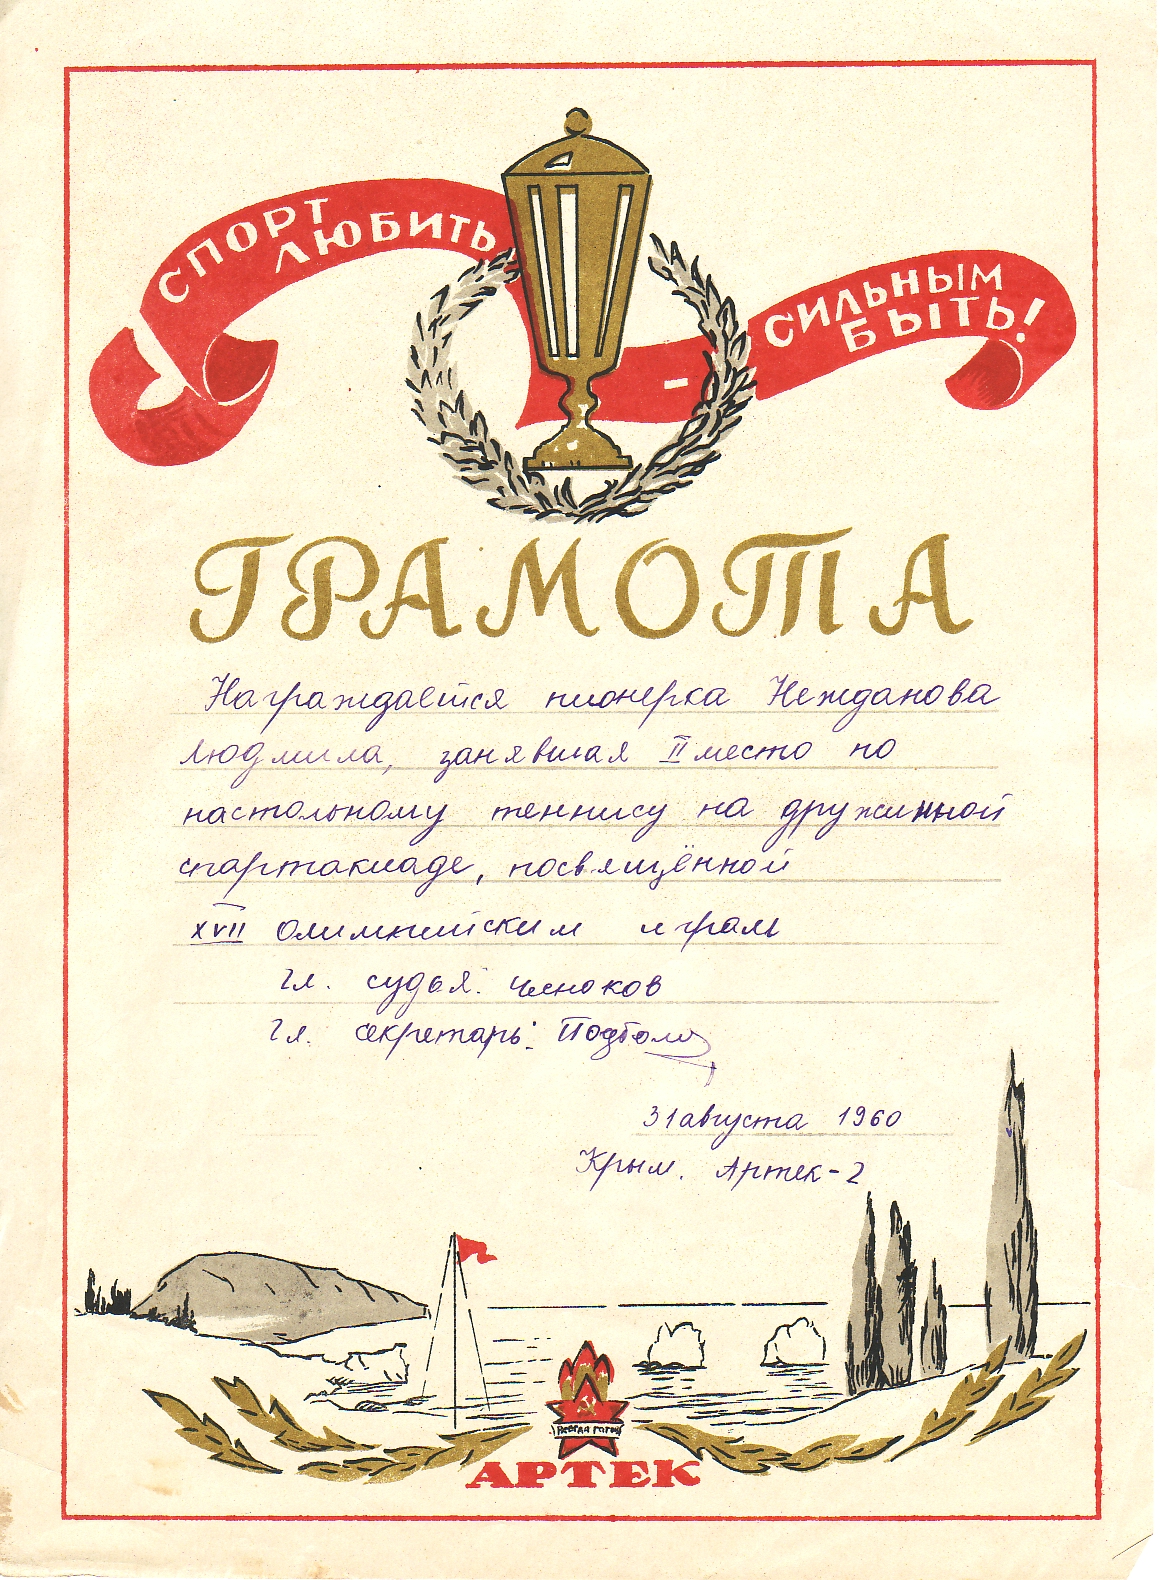 СПОРТ
ЛЮБИТЬ
-
СИЛЬНЫМ
БЫТЬ!
ГРАМОТА
Награждается пионерка Нежданова
Людмила, занявшая II место по
настольному теннису на дружинной
спартакиаде, посвящённой
XVII олимпийским играм
Гл. судья: Чесноков
Гл. секретарь:
31 августа 1960
Крым. Артек-2
ВСЕГДА ГОТОВ
АРТЕК